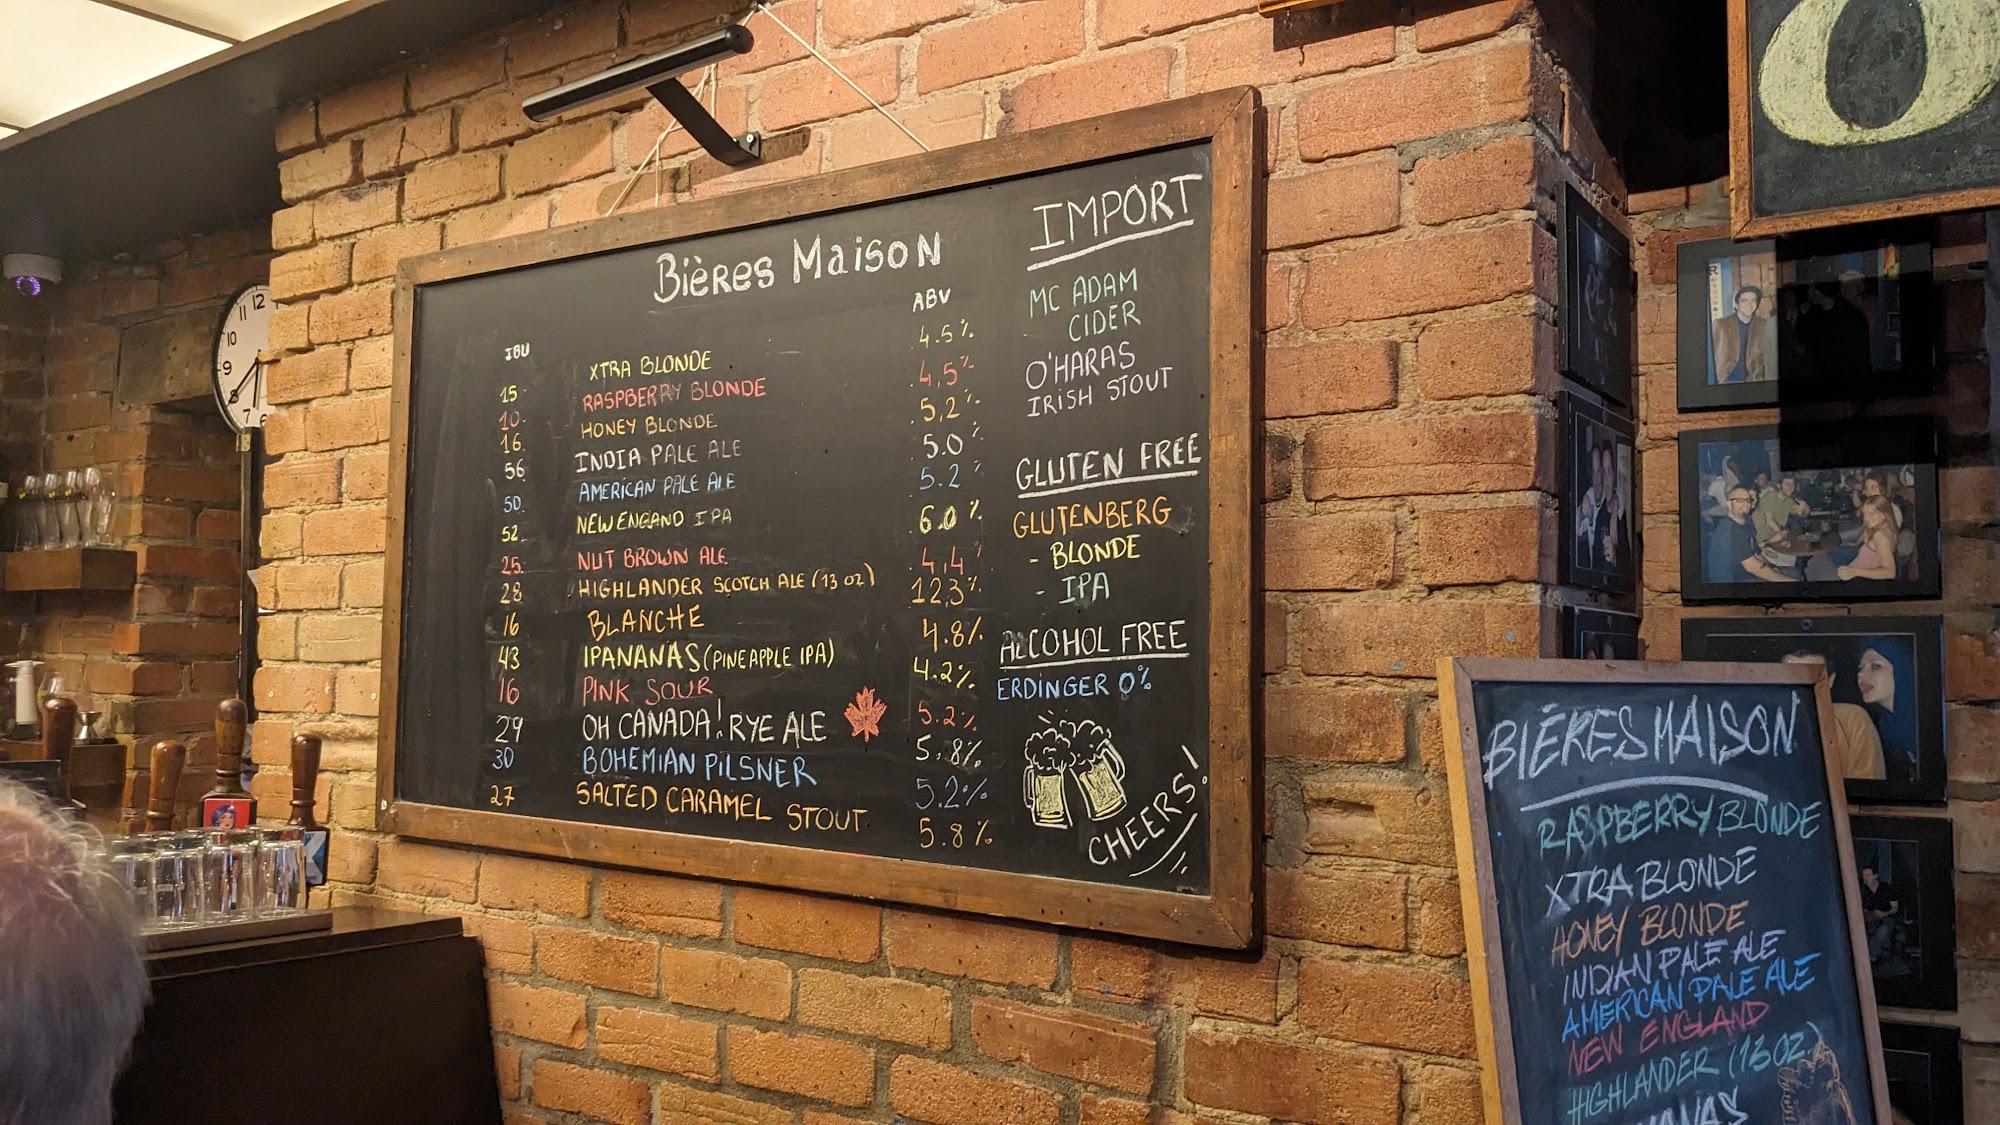 Bières Maison
IBU ABV
15 XTRA BLONDE 4.5%
10 RASPBERRY BLONDE 4,5%
16 HONEY BLONDE 5,2%
56 INDIA PALE ALE 5.0%
50 AMERICAN PALE ALE 5.2%
52 NEW ENGAND IPA 6.0%
25 NUT BROWN ALE 4,4%
28 HIGHLANDER SCOTCH ALE (13 OZ) 12,3%
16 BLANCHE 4.8%
43 IPANANAS (PINEAPPLE IPA) 4.2%
16 PINK SOUR 5.2%
29 OH CANADA! RYE ALE 5,8%
30 BOHEMIAN PILSNER 5.2%
27 SALTED CARAMEL STOUT 5.8%
IMPORT
MC ADAM
CIDER
O'HARAS
IRISH STOUT
GLUTEN FREE
GLUTENBERG
- BLONDE
- IPA
ALCOHOL FREE
ERDINGER 0%
CHEERS!
BIÈRES MAISON
RASPBERRY BLONDE
XTRA BLONDE
HONEY BLONDE
INDIAN PALE ALE
AMERICAN PALE ALE
NEW ENGLAND
HIGHLANDER (13 OZ.)
10 11 12
9
8
7 6